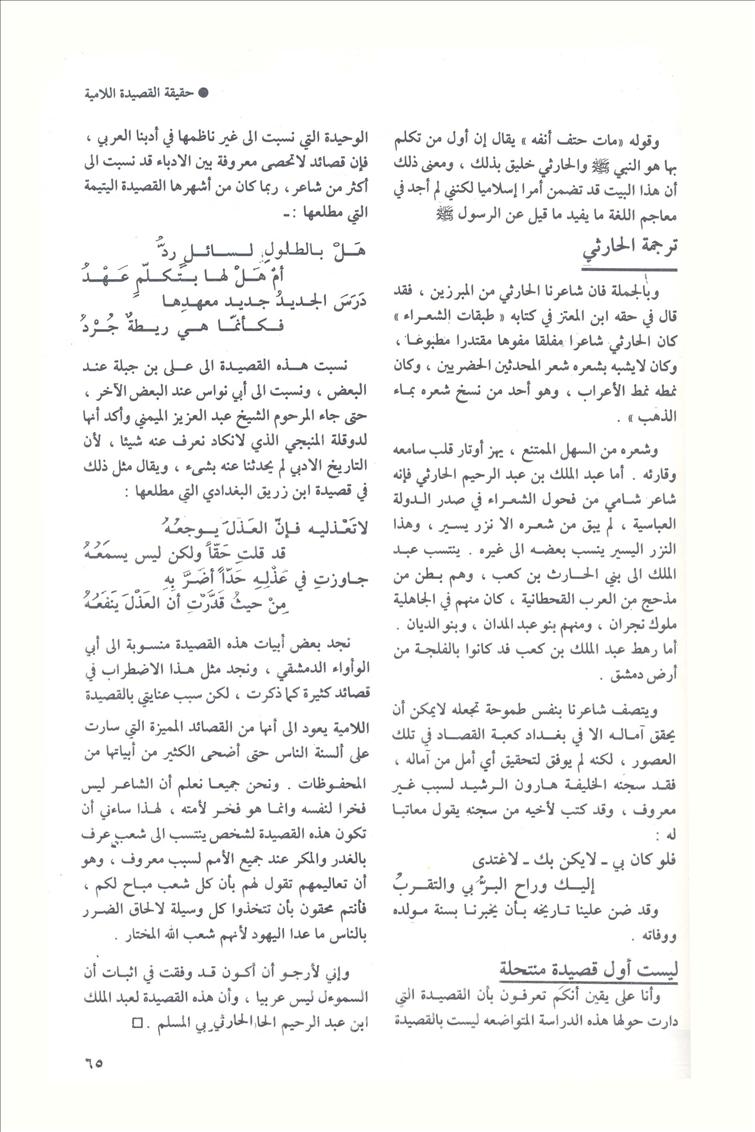 ● حقيقة القصيدة اللامية
وقوله «مات حتف أنفه» يقال إن أول من تكلم
بها هو النبي ﷺ والحارثي خليق بذلك ، ومعنى ذلك
أن هذا البيت قد تضمن أمرا إسلاميا لكنني لم أجد في
معاجم اللغة ما يفيد ما قيل عن الرسول ﷺ
ترجمة الحارثي
وبالجملة فان شاعرنا الحارثي من المبرزين ، فقد
قال في حقه ابن المعتز في كتابه « طبقات الشعراء »
كان الحارثي شاعرا مفلقا مفوها مقتدرا مطبوعا ،
وكان لايشبه بشعره شعر المحدثين الحضريين ، وكان
نمطه نمط الأعراب ، وهو أحد من نسخ شعره بماء
الذهب » .
وشعره من السهل الممتنع ، يهز أوتار قلب سامعه
وقارئه . أما عبد الملك بن عبد الرحيم الحارثي فإنه
شاعر شامي من فحول الشعراء في صدر الدولة
العباسية ، لم يبق من شعره الا نزر يسير ، وهذا
النزر اليسير ينسب بعضه الى غيره . ينتسب عبد
الملك الى بني الحارث بن كعب ، وهم بطن من
مذحج من العرب القحطانية ، كان منهم في الجاهلية
ملوك نجران ، ومنهم بنو عبد المدان ، وبنو الديان .
أما رهط عبد الملك بن كعب فد كانوا بالفلجة من
أرض دمشق .
ويتصف شاعرنا بنفس طموحة تجعله لايمكن أن
يحقق آماله الا في بغداد كعبة القصاد في تلك
العصور ، لكنه لم يوفق لتحقيق أي أمل من آماله ،
فقد سجنه الخليفة هارون الرشيد لسبب غير
معروف ، وقد كتب لأخيه من سجنه يقول معاتبا
له :
فلو كان بي ـ لايكن بك ـ لاغتدى
إليك وراح البرُّ بي والتقربُ
وقد ضن علينا تاريخه بأن يخبرنا بسنة مولده
ووفاته .
ليست أول قصيدة منتحلة
وأنا على يقين أنكم تعرفون بأن القصيدة التي
دارت حولها هذه الدراسة المتواضعه ليست بالقصيدة
الوحيدة التي نسبت الى غير ناظمها في أدبنا العربي ،
فإن قصائد لاتحصى معروفة بين الادباء قد نسبت الى
أكثر من شاعر ، ربما كان من أشهرها القصيدة اليتيمة
التي مطلعها : ـ
هَلْ بالطلولِ لسائلٍ ردُّ
أمْ هَلْ لها بتكلّمٍ عَهْدُ
دَرَسَ الجديدُ جديد معهدِها
فكأنمّا هي ريطةٌ جُرْدُ
نسبت هذه القصيدة الى على بن جبلة عند
البعض ، ونسبت الى أبي نواس عند البعض الآخر ،
حتى جاء المرحوم الشيخ عبد العزيز الميمني وأكد أنها
لدوقلة المنبجي الذي لانكاد نعرف عنه شيئا ، لأن
التاريخ الادبي لم يحدثنا عنه بشىء ، ويقال مثل ذلك
في قصيدة ابن زريق البغدادي التي مطلعها :
لاتَعْذليه فإنّ العَذلَ يوجعُهُ
قد قلتِ حَقّاً ولكن ليس يسمَعُهُ
جاوزتِ في عَذْلِهِ حَدّاً أضَرَّ بِهِ
مِنْ حيثُ قَدَّرْتِ أن العَذْلَ يَنفَعُهُ
نجد بعض أبيات هذه القصيدة منسوبة الى أبي
الوأواء الدمشقي ، ونجد مثل هذا الاضطراب في
قصائد كثيرة كما ذكرت ، لكن سبب عنايتي بالقصيدة
اللامية يعود الى أنها من القصائد المميزة التي سارت
على ألسنة الناس حتى أضحى الكثير من أبياتها من
المحفوظات . ونحن جميعا نعلم أن الشاعر ليس
فخرا لنفسه وانما هو فخر لأمته ، لهذا ساءني أن
تكون هذه القصيدة لشخص ينتسب الى شعب عرف
بالغدر والمكر عند جميع الأمم لسبب معروف ، وهو
أن تعاليمهم تقول لهم بأن كل شعب مباح لكم ،
فأنتم محقون بأن تتخذوا كل وسيلة لالحاق الضرر
بالناس ما عدا اليهود لأنهم شعب الله المختار .
وإني لأرجو أن أكون قد وفقت في اثبات أن
السموءل ليس عربيا ، وأن هذه القصيدة لعبد الملك
ابن عبد الرحيم الحا الحارثي بي المسلم . □
٦٥